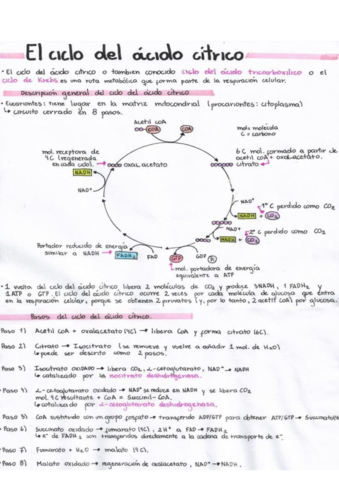 El ciclo del ácido cítrico
• El ciclo del ácido cítrico o tambien conocido ciclo del ácido tricarboxílico o el
ciclo de Krebs es una ruta metabólica que forma parte de la respiración celular.
Descripción general del ciclo del ácido cítrico
• Eucariontes: tiene lugar en la matriz mitocondrial (procariontes: citoplasma)
↳ circuito cerrado en 8 pasos.
Acetil CoA
CoA
CoA
mol: molécula
C = carbono
mol. receptora de
4C (regenerada
en cada ciclo).
oxalacetato
6C mol. formado a partir de
acetil CoA + oxalacetato.
citrato
NADH
NAD⁺
NAD⁺
1º C perdido como CO₂
NADH
CO₂
NAD⁺
2º C perdido como CO₂
NADH
CO₂
Portador reducido de energía
similar a NADH
FADH₂
FAD
GTP
GDP
mol. portadora de energía
equivalente a ATP
• 1 vuelta del ciclo del ácido cítrico, libera 2 moléculas de CO₂ y produce 3NADH, 1 FADH₂ y
1 ATP o GTP. El ciclo del ácido cítrico ocurre 2 veces por cada molécula de glucosa que entra
en la respiración celular, porque se obtienen 2 piruvatos (y, por lo tanto, 2 acetil CoA) por glucosa.
Pasos del ciclo del ácido cítrico.
Paso 1) Acetil CoA + oxalacetato (4C) → libera CoA y forma citrato (6C).
Paso 2) Citrato → Isocitrato (se remueve y vuelve a añadir 1 mol. de H₂O)
↳ puede ser descrito como 2 pasos.
Paso 3) Isocitrato oxidado → libera CO₂, α-cetoglutarato, NAD⁺ → NADH
↳ catalizado por la isocitrato deshidrogenasa.
Paso 4) α-cetoglutarato oxidado → NAD⁺ se reduce en NADH y se libera CO₂
mol 4C resultante + CoA = Succinil-CoA.
↳ catalizado por α-cetoglutarato deshidrogenasa.
Paso 5) CoA sustituido con un grupo fosfato → transferido ADP/GTP para obtener ATP/GTP → Succinato
Paso 6) Succinato oxidado → fumarato (4C), 2H⁺ a FAD → FADH₂
↳ e⁻ de FADH₂ son transferidos directamente a la cadena de transporte de e⁻.
Paso 7) Fumarato + H₂O → malato (4C).
Paso 8) Malato oxidado → regeneración de oxalacetato, NAD⁺ → NADH.